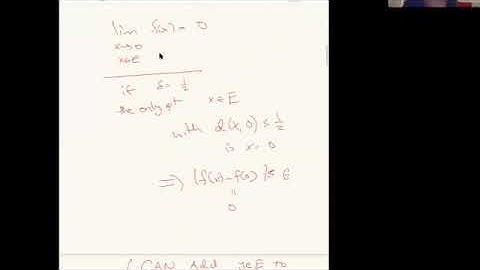 lim f(x) = 0
x→0
x∈E
if δ = 1/2
the only pt x∈E
with d(x, 0) ≤ 1/2
is x = 0
⇒ |f(x) - f(0)| ≤ ε
=
0
I CAN ADD TO